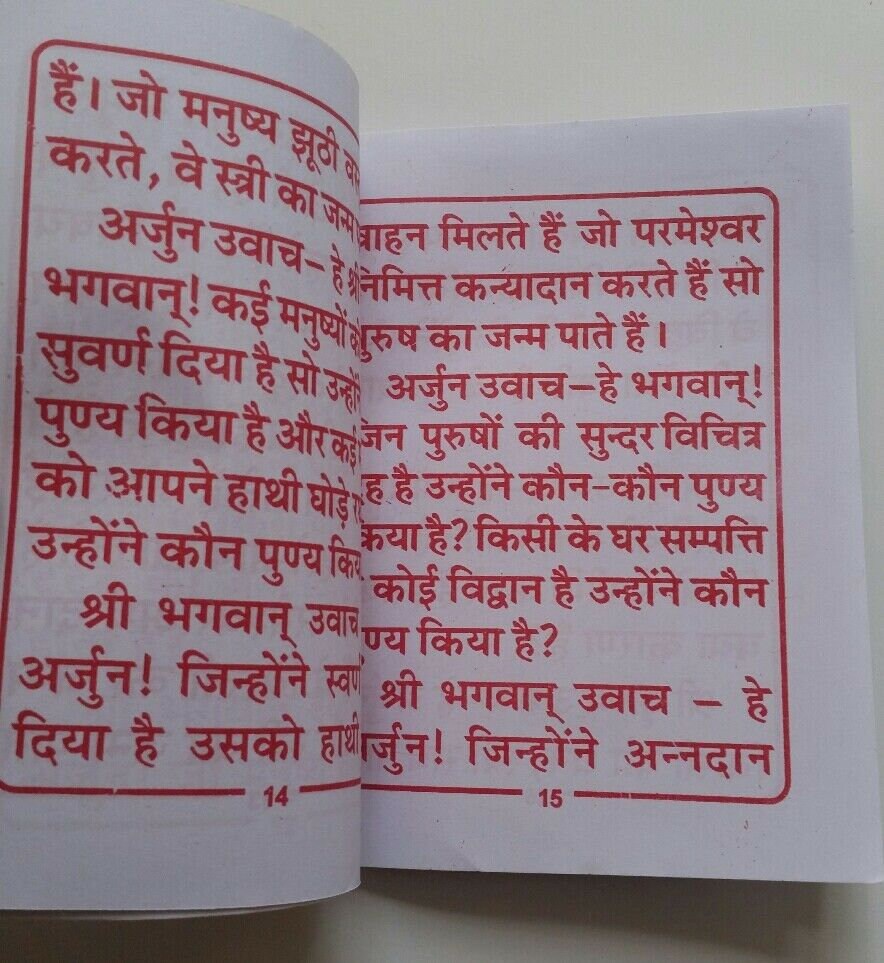 हैं। जो मनुष्य झूठी
करते, वे स्त्री का जन्म
अर्जुन उवाच– हे
भगवान्! कई मनुष्यों
सुवर्ण दिया है सो
पुण्य किया है और कई
को आपने हाथी घोड़े
उन्होंने कौन पुण्य
श्री भगवान् उवाच
अर्जुन! जिन्होंने
दिया है उसको हाथी
14
मिलते हैं जो परमेश्वर
कन्यादान करते हैं सो
का जन्म पाते हैं।
अर्जुन उवाच–हे भगवान्!
पुरुषों की सुन्दर विचित्र
है उन्होंने कौन–कौन पुण्य
है? किसी के घर सम्पत्ति
कोई विद्वान है उन्होंने कौन
किया है?
श्री भगवान् उवाच – हे
जिन्होंने अन्नदान
15